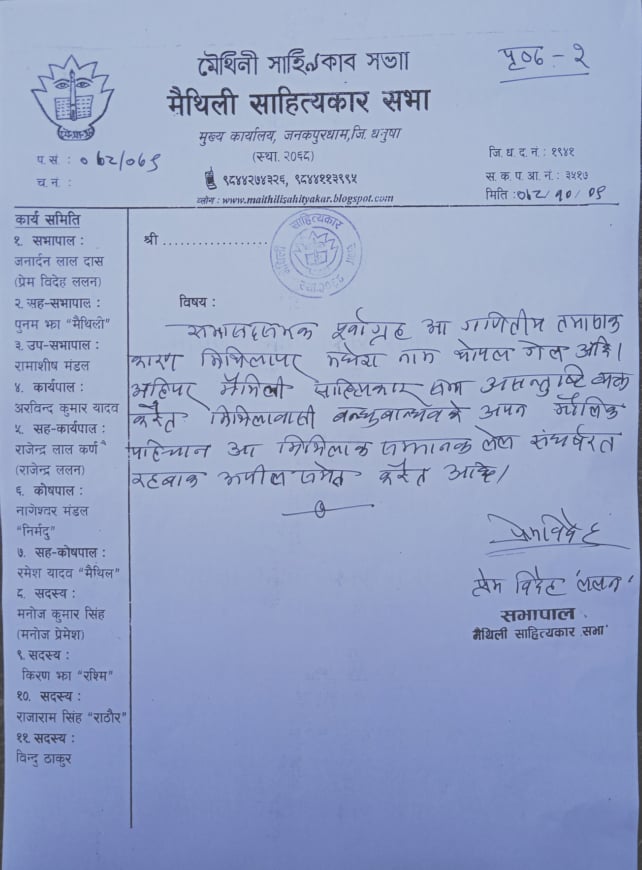 पृष्ठ - २
मैथिली साहित्यकार सभा
मुख्य कार्यालय, जनकपुरधाम, जि. धनुषा
(स्था. २०६८)
९८४४२७४३२६, ९८४४११३९९५
ब्लोग : www.maithilisahityakar.blogspot.com
प. सं. : ०७८/०७९
च. नं. :
जि. ध. द. नं. : १९४१
स. क. प. आ. नं. : ३५१७
मिति :
कार्य समिति
१. सभापाल :
जनार्दन लाल दास
(प्रेम विदेह ललन)
२. सह-सभापाल :
पुनम झा "मैथिली"
३. उप-सभापाल :
रामाशीष मंडल
४. कार्यपाल :
अरविन्द कुमार यादव
५. सह-कार्यपाल :
राजेन्द्र लाल कर्ण
(राजेन्द्र ललन)
६. कोषपाल :
नागेश्वर मंडल
"निर्मदु"
७. सह-कोषपाल :
रमेश यादव "मैथिल"
८. सदस्य :
मनोज कुमार सिंह
(मनोज प्रेमेश)
९. सदस्य :
किरण झा "रश्मि"
१०. सदस्य :
राजाराम सिंह "राठौर"
११. सदस्य :
विन्दु ठाकुर
श्री ........................
मैथिली साहित्यकार सभा
स्था.२०६८
विषय :
पूर्वाग्रह आ गणितीय
कारण मिथिलापर मधेश नाम थोपल गेल अछि।
अहिपर मैथिली साहित्यकार सभा असन्तुष्टि व्यक्त
करैत मिथिलावासी बन्धुबान्धव के अपन मौलिक
पहिचान आ मिथिलाक सम्मानक लेल संघर्षरत
रहबाक अपील समेत करैत अछि।
प्रेमविदेह
प्रेम विदेह 'ललन'
सभापाल
मैथिली साहित्यकार सभा